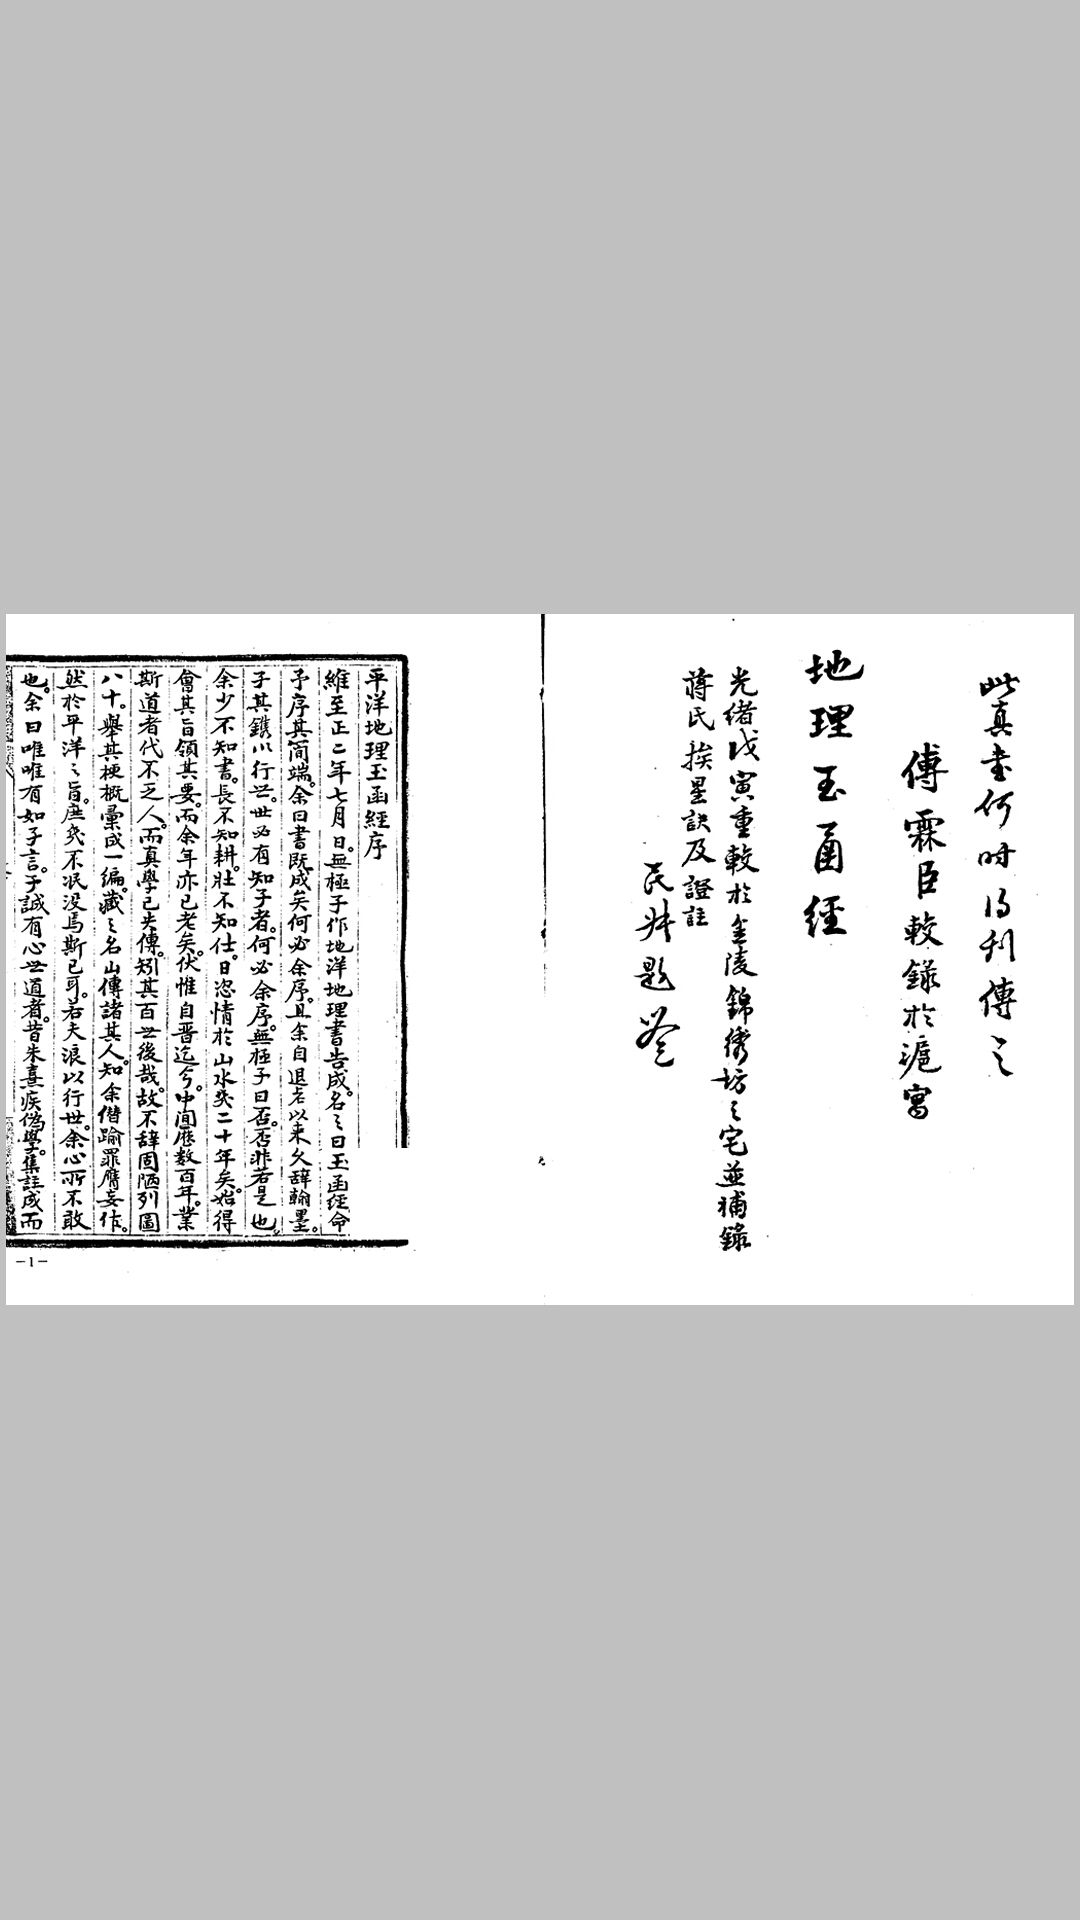 此真書何時得刊傳之
傅霖臣較錄於滬寓
地理玉函經
光緒戊寅重較於金陵錦繡坊之宅並補錄
蔣氏挨星訣及證註
題簽
平洋地理玉函經序
維至正二年七月日。無極子作地洋地理書告成。名之曰玉函經命
予序其簡端。余曰書既成矣何必余序。且余自退老以来久辞翰墨。
子其鐫以行世。世必有知子者。何必余序。無極子曰否。否非若是也。
余少不知書。長不知耕。壯不知仕。日恣情於山水癸二十年矣。始得
會其旨領其要。而余年亦已老矣。伏惟自晋迄今。中间歷数百年。業
斯道者代不乏人。而真學已失傳。矧其百世後哉。故不辞固陋列圖
八十。舉其梗概彙成一编。藏之名山傳諸其人。知余僭踰罪膺妄作。
然於平洋之旨。庶几不泯没焉斯已可。若夫浪以行世。余心所不敢
也。余曰唯唯有如子言。子誠有心世道者。昔朱熹疾偽學。集註成而
-1-